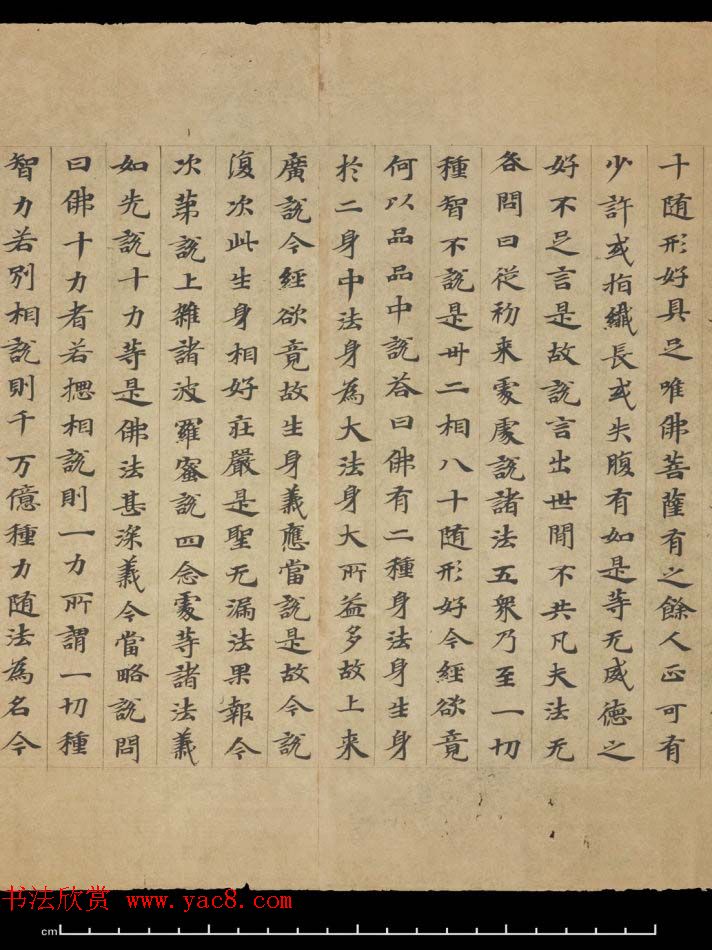 十随形好具足唯佛菩薩有之餘人正可有
少許或指纖長或失腹有如是等无威德之
好不足言是故說言出世間不共凡夫法无
咎問曰從初來處處說諸法五衆乃至一切
種智不說是卅二相八十随形好今經欲竟
何以品品中說荅曰佛有二種身法身生身
於二身中法身為大法身大所益多故上来
廣說今經欲竟故生身義應當說是故今說
復次此生身相好莊嚴是聖无漏法果報今
次第說上雜諸波羅蜜說四念處等諸法義
如先說十力等是佛法甚深義今當略說問
曰佛十力者若揔相說則一力所謂一切種
智力若別相說則千万億種力随法為名今
书法欣赏 www.yac8.com
cm